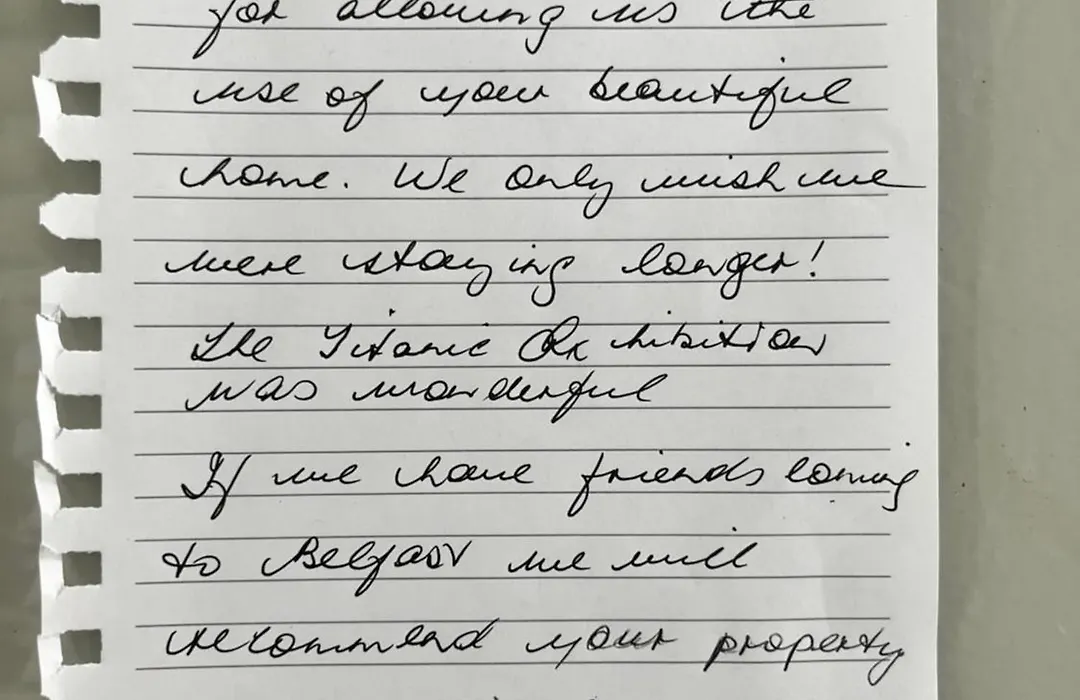 for allowing us the
use of your beautiful
home. We only wish we
were staying longer!
The Titanic Exhibition
was wonderful
If we have friends coming
to Belfast we will
recommend your property